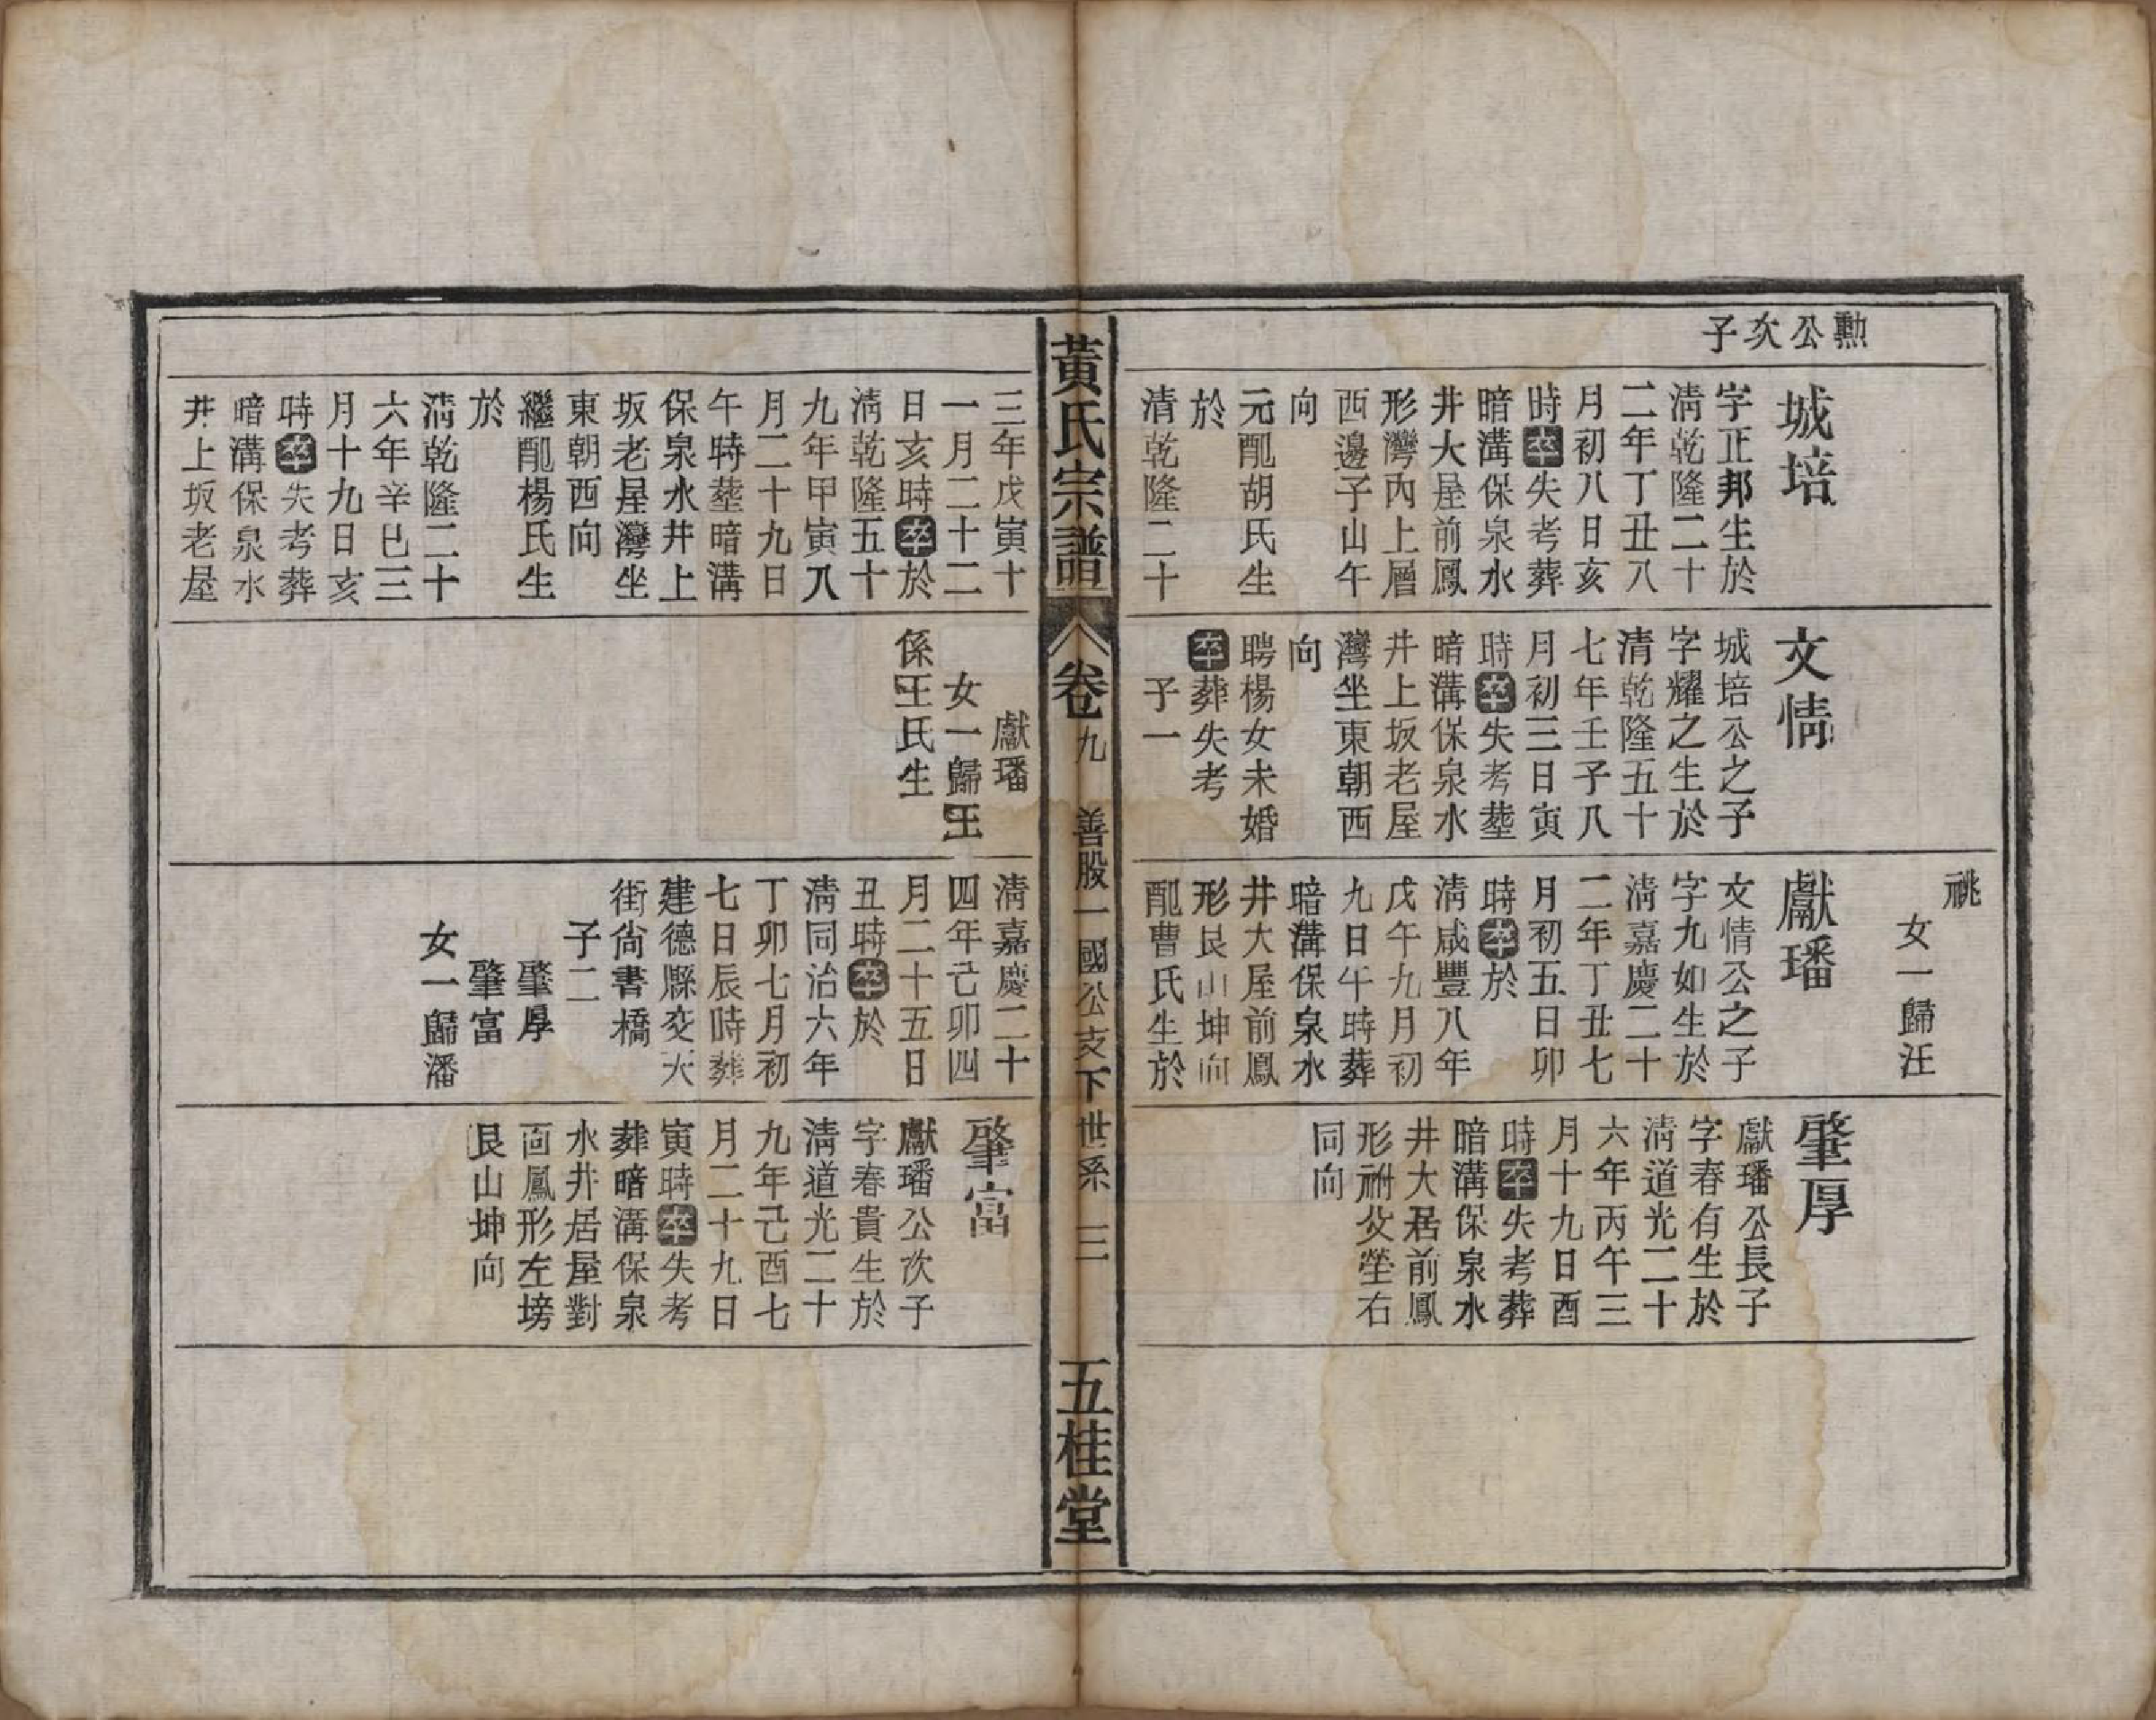 勲公次子
城培
字正邦生於
清乾隆二十
二年丁丑八
月初八日亥
時卒失考葬
暗溝保泉水
井大屋前鳳
形灣內上層
西邊子山午
向
元配胡氏生
於
清乾隆二十
文情
城培公之子
字耀之生於
清乾隆五十
七年壬子八
月初三日寅
時卒失考塟
暗溝保泉水
井上坂老屋
灣坐東朝西
向
聘楊女未婚
卒葬失考
子一
祧
女一歸汪
獻璠
文情公之子
字九如生於
清嘉慶二十
二年丁丑七
月初五日卯
時卒於
清咸豐八年
戊午九月初
九日午時葬
暗溝保泉水
井大屋前鳳
形艮山坤向
配曹氏生於
肇厚
獻璠公長子
字春有生於
清道光二十
六年丙午三
月十九日酉
時卒失考葬
暗溝保泉水
井大居前鳳
形祔父塋右
同向
黃氏宗譜
卷九
善股一國公支下世系
三
五桂堂
三年戊寅十
一月二十二
日亥時卒於
清乾隆五十
九年甲寅八
月二十九日
午時塟暗溝
保泉水井上
坂老屋灣坐
東朝西向
繼配楊氏生
於
清乾隆二十
六年辛巳三
月十九日亥
時卒失考葬
暗溝保泉水
井上坂老屋
獻璠
女一歸王
係王氏生
清嘉慶二十
四年己卯四
月二十五日
丑時卒於
清同治六年
丁卯七月初
七日辰時葬
建德縣交天
街尚書橋
子二
肇厚
肇富
女一歸潘
肇富
獻璠公次子
字春貴生於
清道光二十
九年己酉七
月二十九日
寅時卒失考
葬暗溝保泉
水井居屋對
面鳳形左塝
艮山坤向